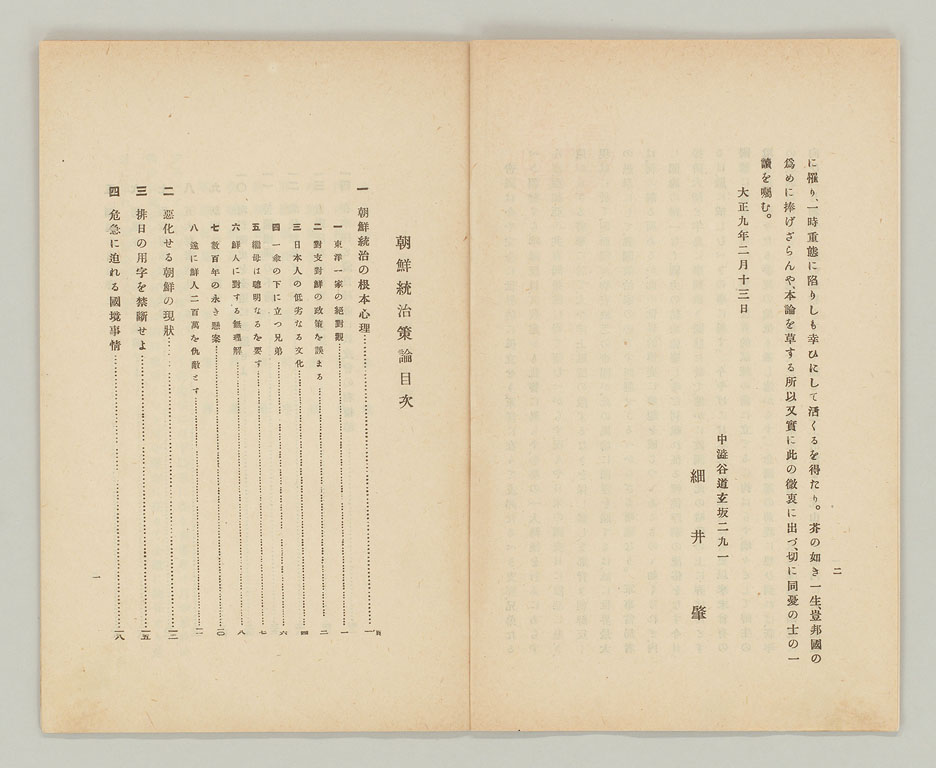 に罹り、一時重態に陷りしも幸ひにして活くるを得たり。芥の如き一生、豈邦國の
爲めに捧げざらんや、本論を草する所以又實に此の微衷に出づ、切に同憂の士の一
讀を囑む。
大正九年二月十三日
中澁谷道玄坂二九一
細井肇
二
朝鮮統治策論目次
一 朝鮮統治の根本心理……一
一 東洋一家の絕對觀……一
二 對支對鮮の政策を誤まる……二
三 日本人の低劣なる文化……四
四 一傘の下に立つ兄弟……六
五 繼母は聰明なるを要す……七
六 鮮人に對する無理解……八
七 數百年の永き懸案……一〇
八 遂に鮮人二百萬を仇敵とす……一一
二 惡化せる朝鮮の現狀……一三
三 排日の用字を禁斷せよ……一五
四 危急に迫れる國境事情……一八
一